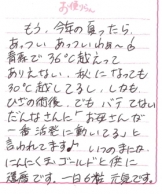 お便りから
もう、今年の夏ったら
あっつい あっついわぁ〜
青森で36℃越えって
ありえない。秋になっても
30℃越してるし、しかも
ひざの術後。でもバテてない
だんなさんに「お母さんが
一番活発に動いてる」と
言われてます いつのまにか
にんにく玉ゴールドと供に
還暦です。一日6粒 元気です。